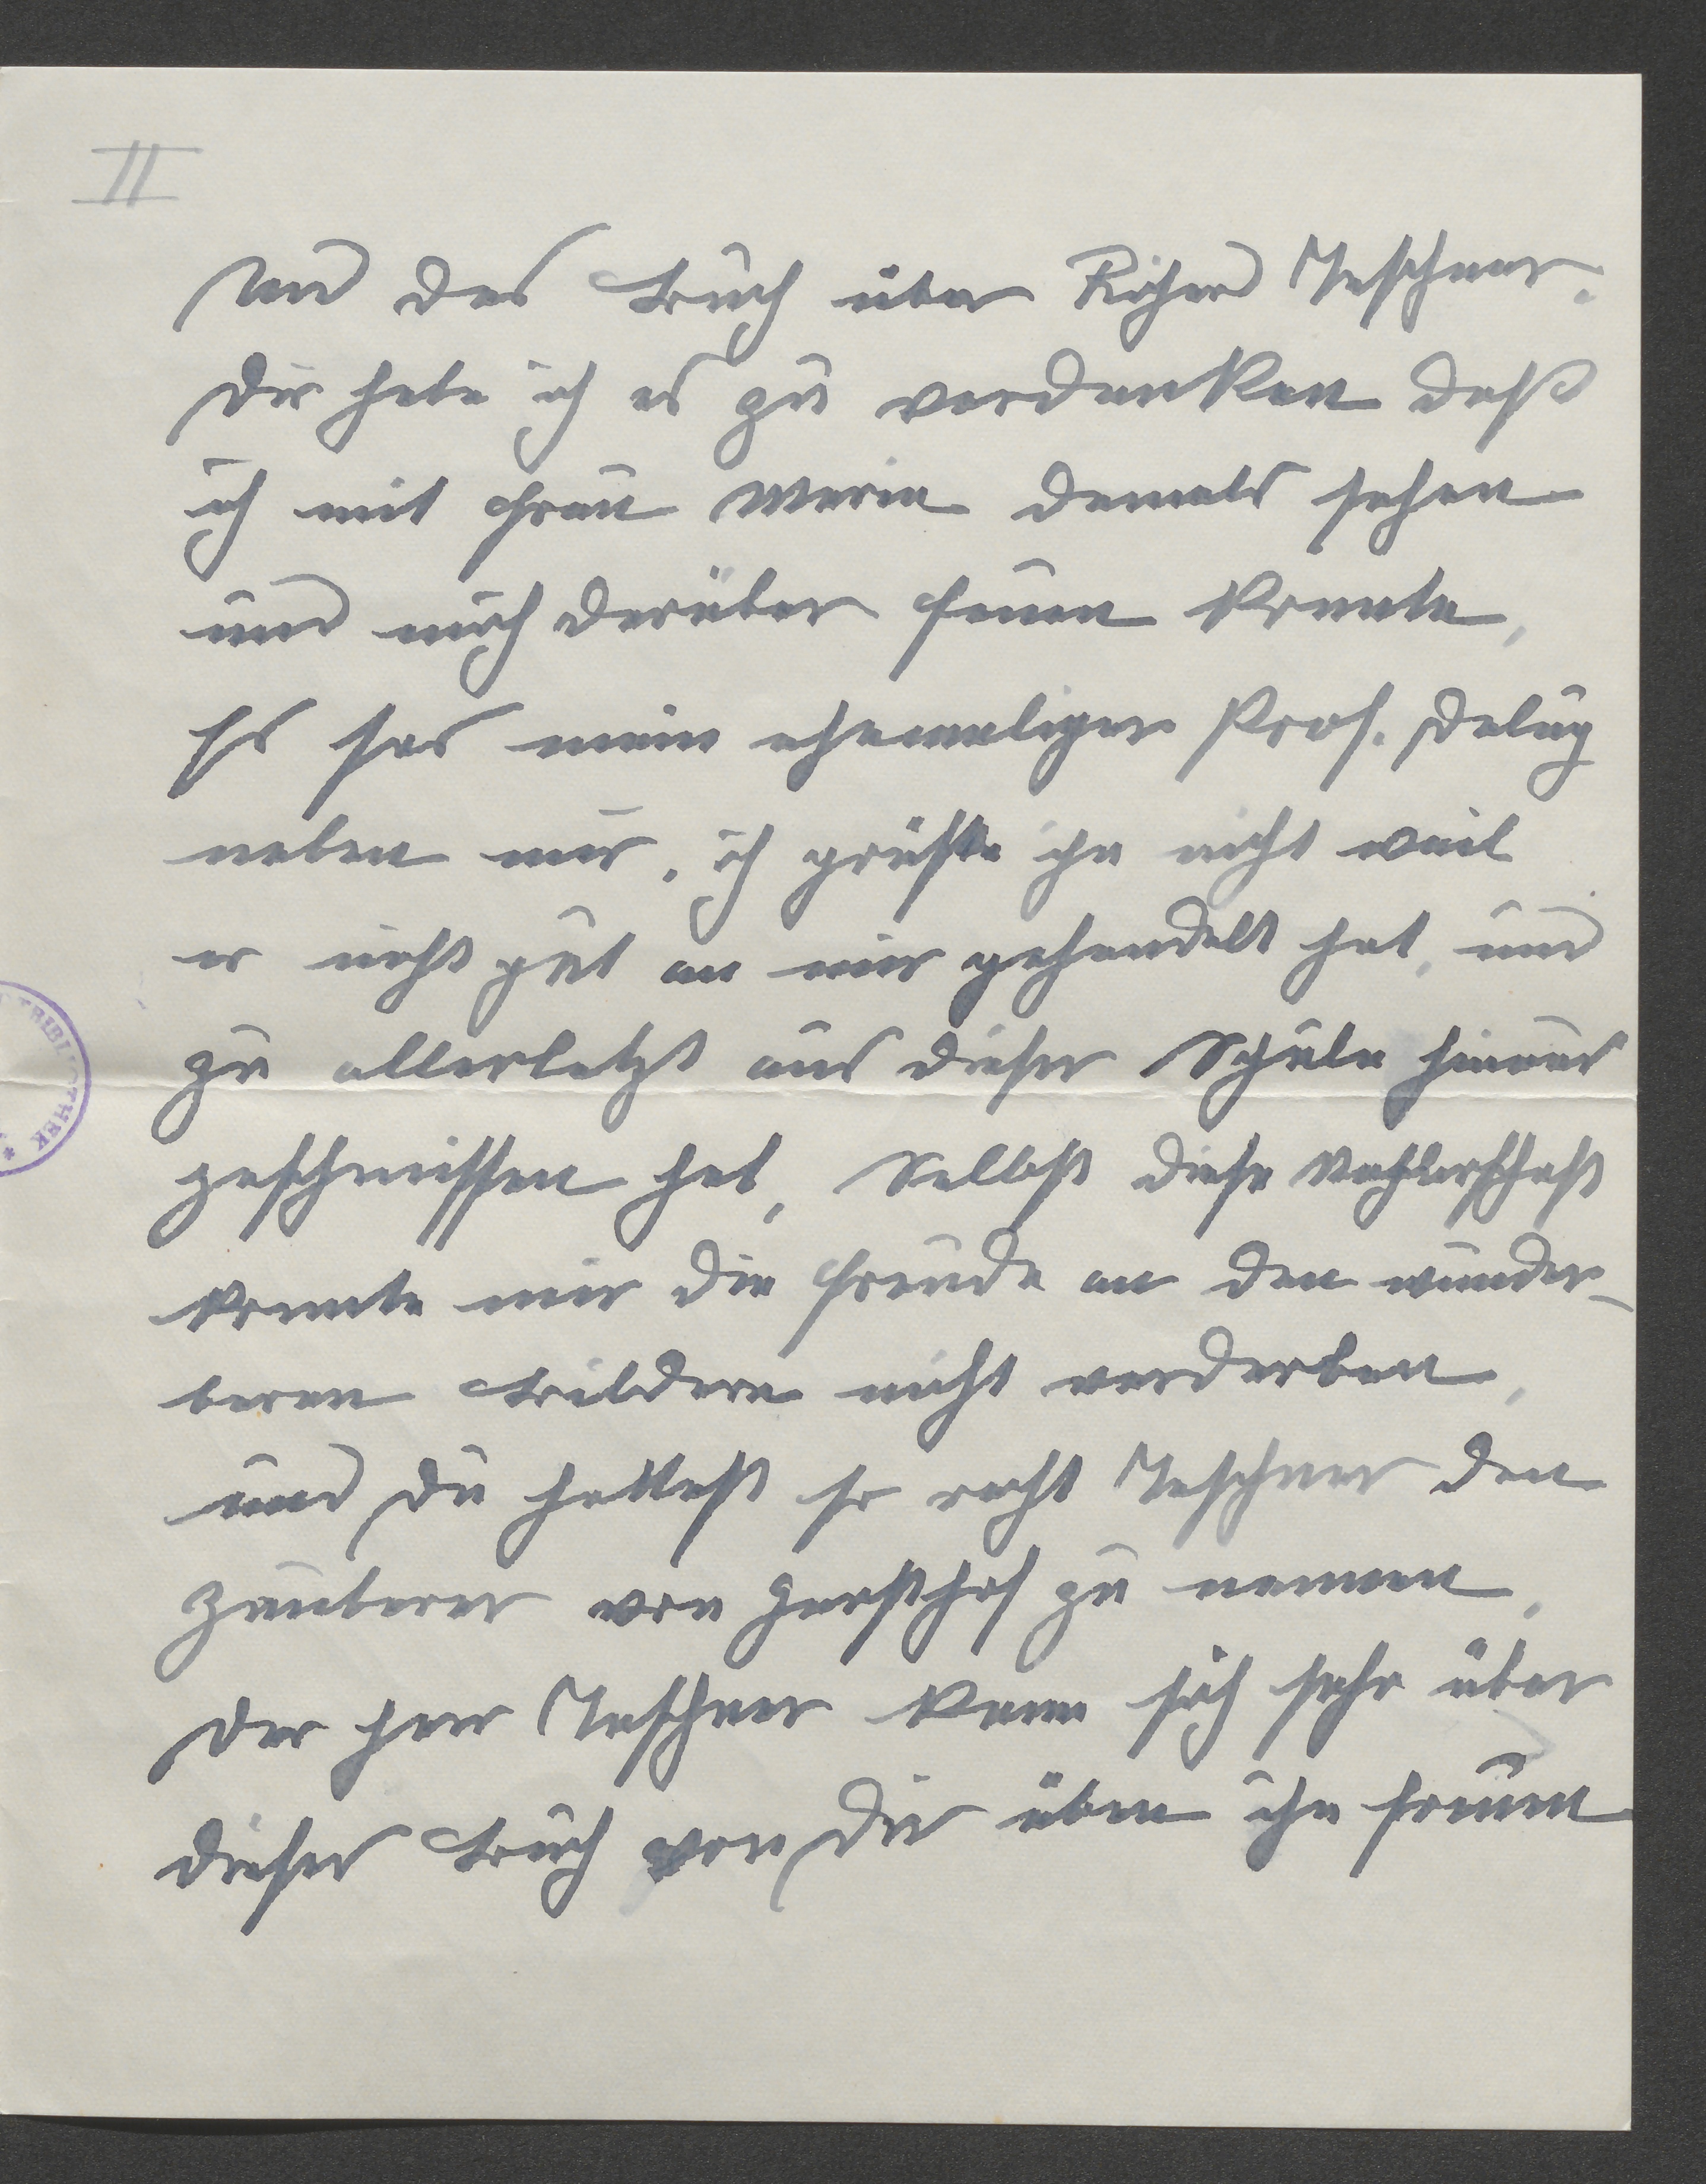 II
Und das Buch über Richard Teschner.
Dir habe ich es zu verdanken daß
ich mit Frau Maria damals sehen
und mich darüber freuen konnte,
Es sas mein ehemaliger Prof. Delug
neben mir, ich grüßte ihn nicht weil
er nicht gut an mir gehandelt hat, und
zu allerletzt aus dieser Schule hinaus
geschmissen hat, Selbst diese
konnte mir die Freude an den wunder-
baren Bildern nicht verderben,
und Du hattest so recht Teschner den
Zauberer von Gersthof zu nennen,
Der Herr Teschner kann sich sehr über
dieser Buch von Dir über ihn freuen
BIBLIOTHEK *